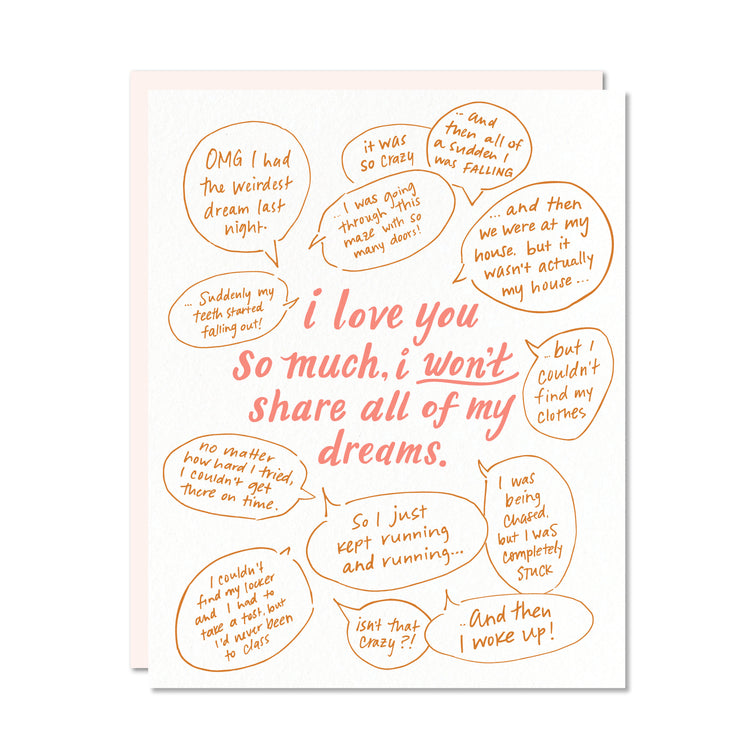 OMG I had
the weirdest
dream last
night.
it was
so crazy
...and
then all of
a sudden I
was FALLING
...I was going
through this
maze with so
many doors!
...and then
we were at my
house. but it
wasn't actually
my house...
... Suddenly my
teeth started
falling out!
i love you
so much, i won't
share all of my
dreams.
...but I
couldn't
find my
clothes
no matter
how hard I tried,
I couldn't get
there on time.
So I just
kept running
and running...
I was
being
chased,
but I was
completely
STUCK
I couldn't
find my locker
and I had to
take a test, but
I'd never been
to class
isn't that
crazy?!
...And then
I woke up!